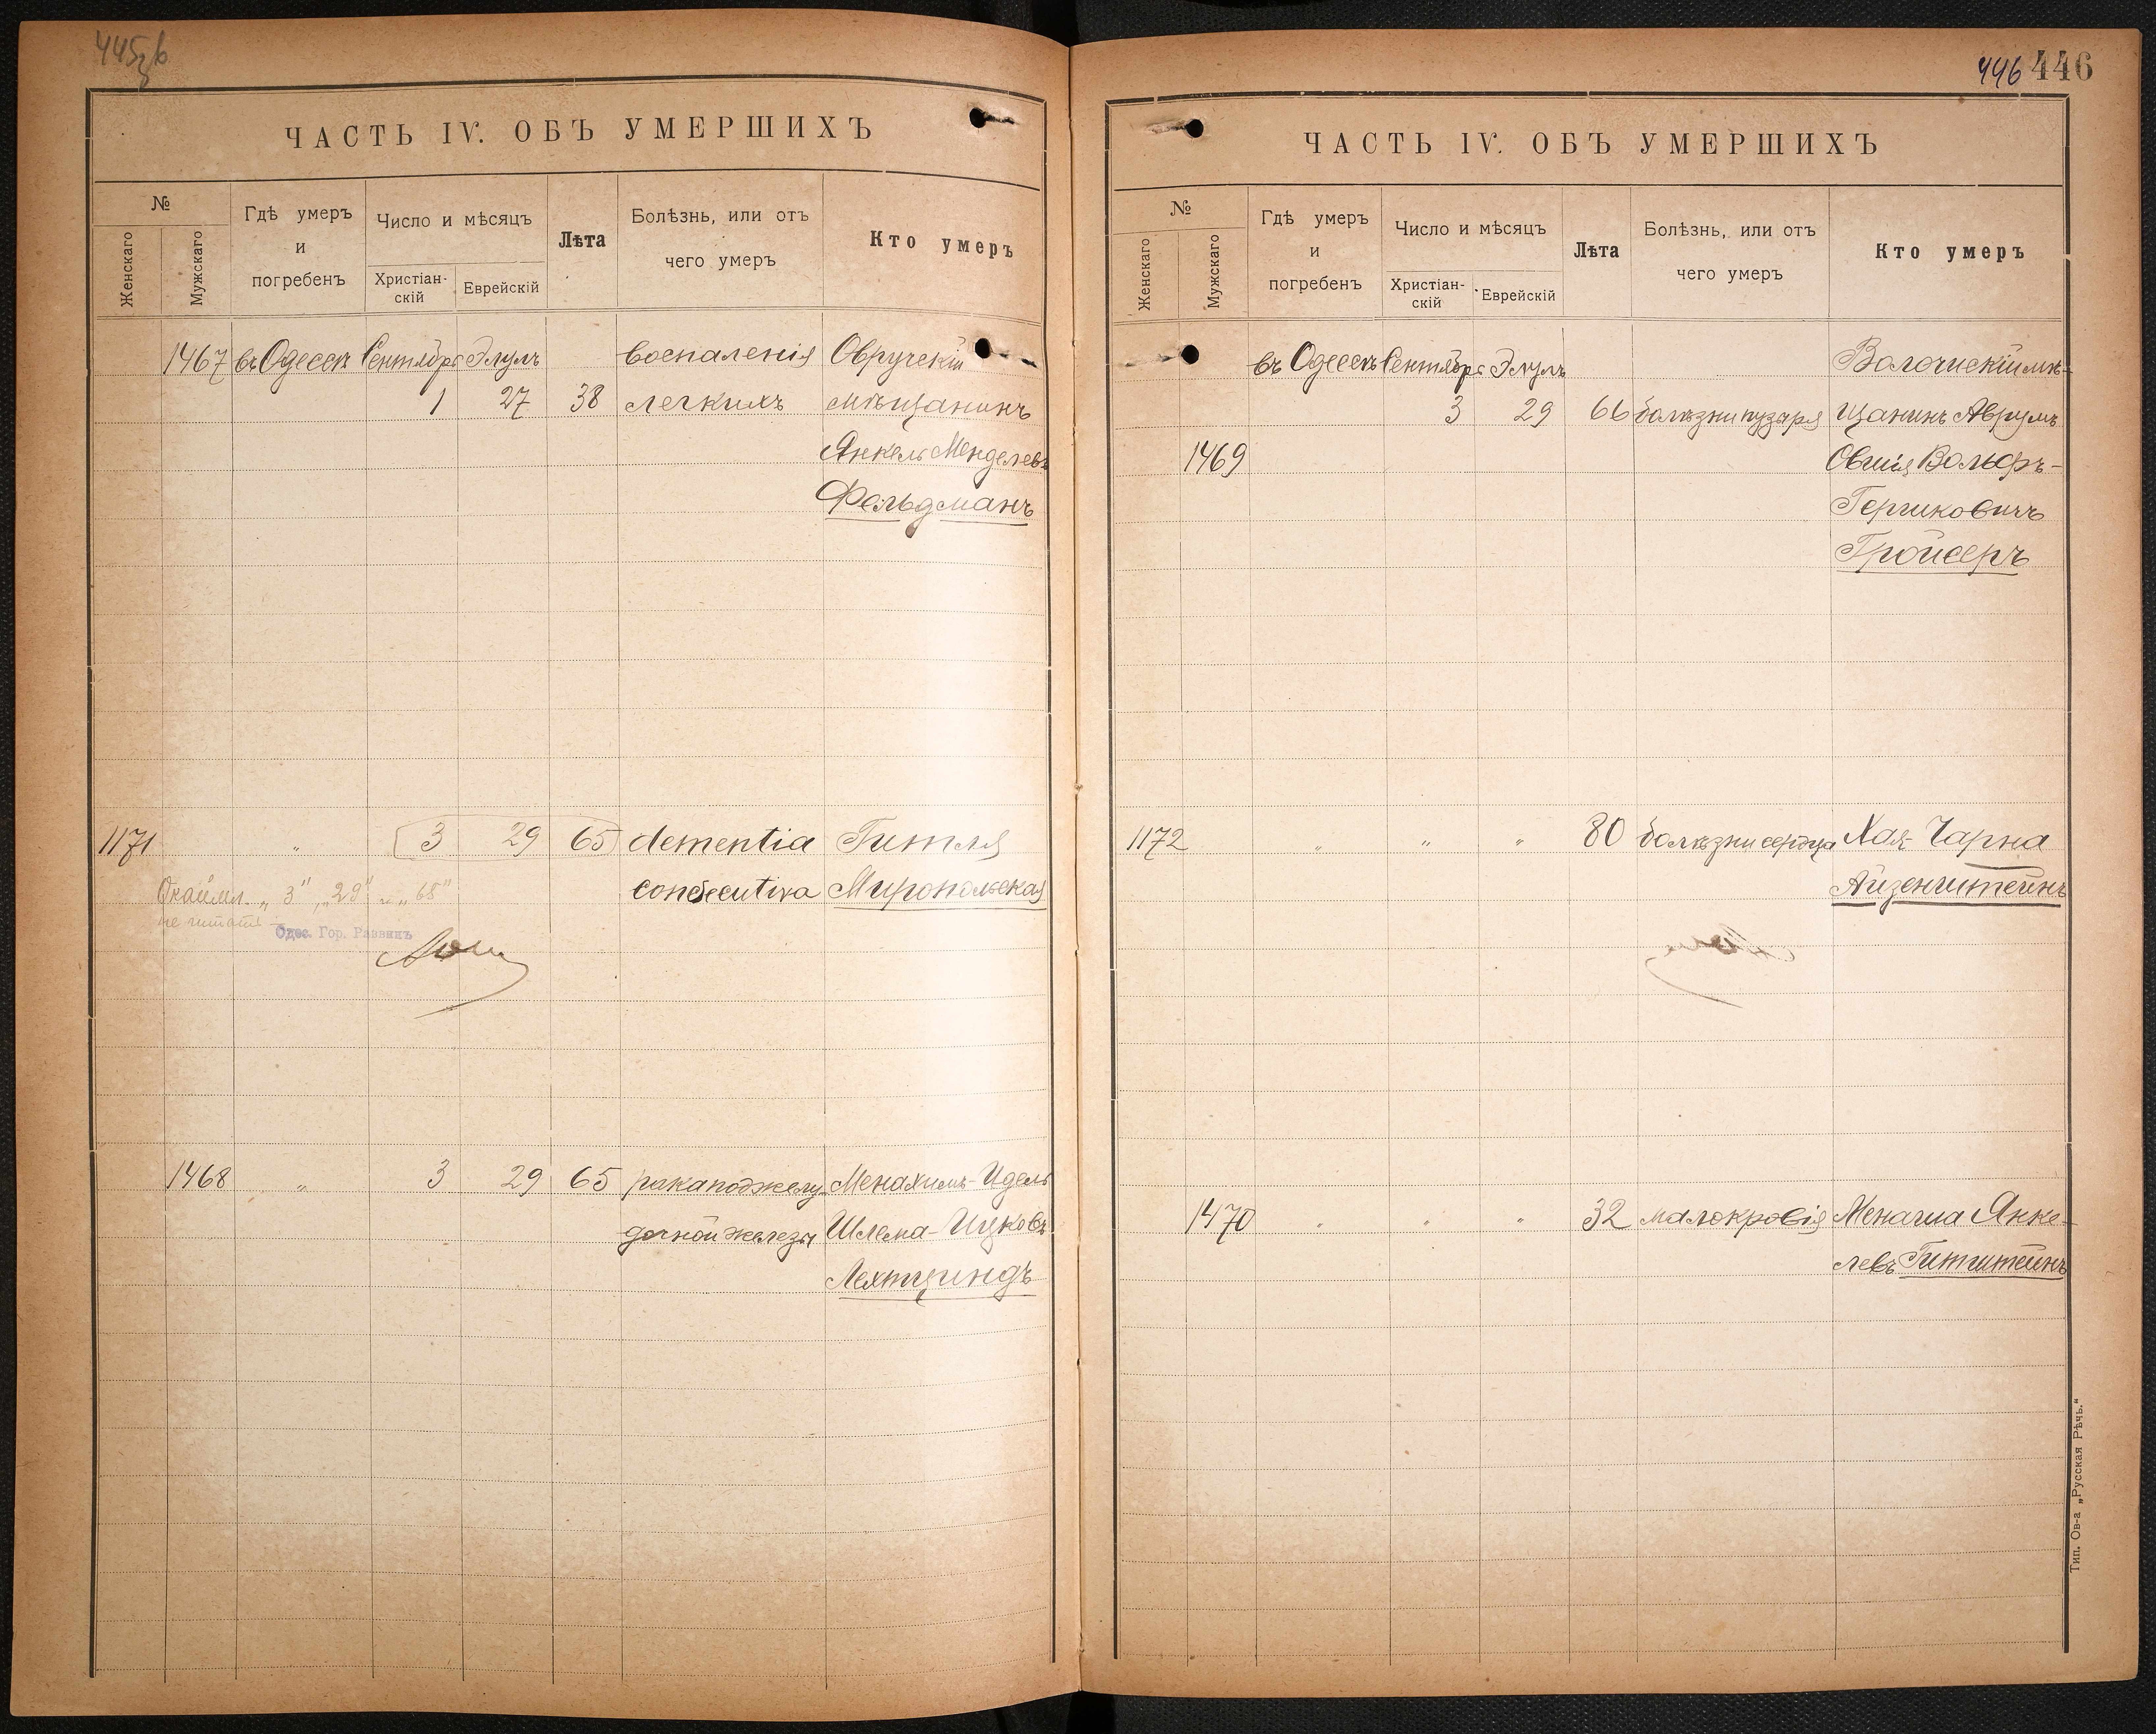 445
ЧАСТЬ IV. ОБЪ УМЕРШИХЪ
№
Женскаго
Мужскаго
Гдѣ умеръ
и
погребенъ
Число и мѣсяцъ
Христіан-
скій
Еврейскій
Лѣта
Болѣзнь, или отъ
чего умеръ
Кто умеръ
1467 въ Одессѣ Сентябрь Элулъ воспаленія Овручскій
1 27 38 легкихъ мѣщанинъ
Янкель Менделевъ
Фельдманъ
1171 " 3 29 65 dementia Гитля
consecutiva Миропольская
Окаймл. „3", „29" и „65"
не читать
Одес. Гор. Раввинъ
1468 " 3 29 65 рака поджелу- Менахимъ-Идель
дочной железы Шлема-Ицковъ
Лехтциндъ
446 446
ЧАСТЬ IV. ОБЪ УМЕРШИХЪ
№
Женскаго
Мужскаго
Гдѣ умеръ
и
погребенъ
Число и мѣсяцъ
Христіан-
скій
Еврейскій
Лѣта
Болѣзнь, или отъ
чего умеръ
Кто умеръ
въ Одессѣ Сентябрь Элулъ Волочискій мѣ-
3 29 66 болѣзни пузыря щанинъ Аврумъ
1469 Овшія Вольфъ-
Гершковичъ
Гройсеръ
1172 " " " 80 болѣзни сердца Хая-Чарна
Айзенштейнъ
1470 " " " 32 малокровія Менаша Янке-
левъ Гитштейнъ
Тип. Ов-а „Русская Рѣчь."